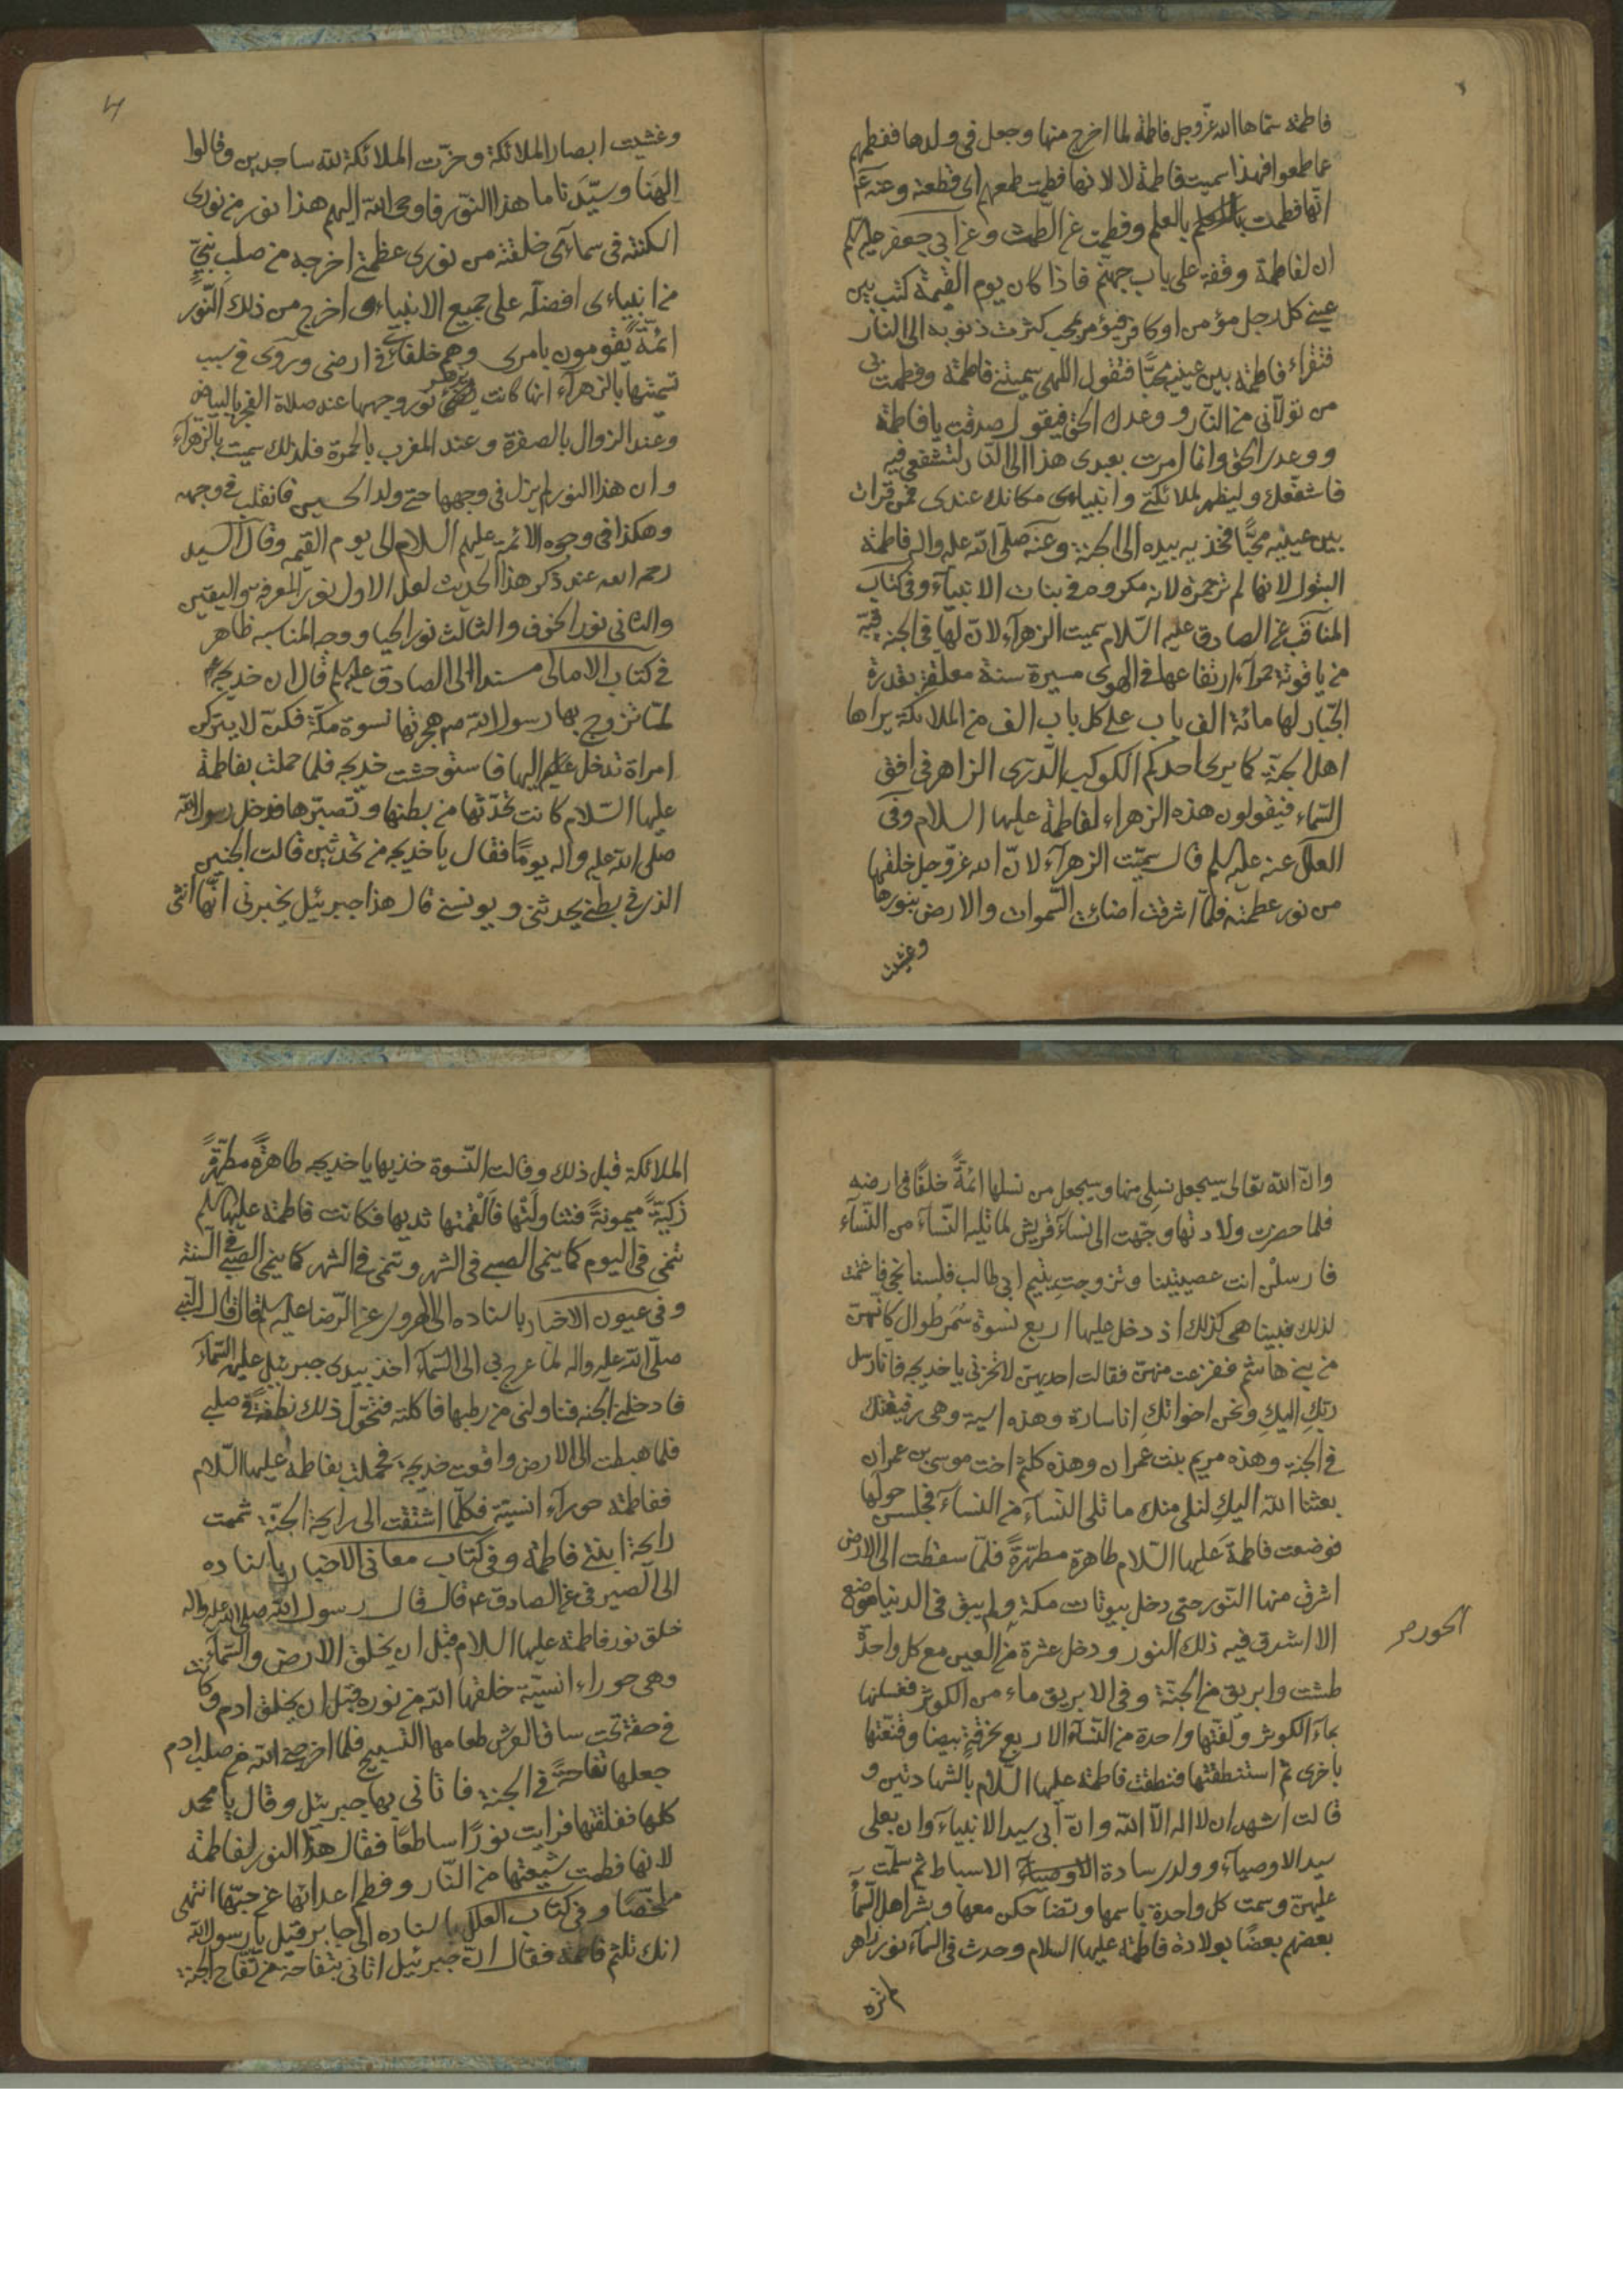 فاطمة سماها الله عز وجل فاطمة لما اخرج منها وجعل في ولدها ففطمهم
عما طمعوا فبهذا سميت فاطمة لا لانها فطمت طمعهم اى قطعته وعنه ع
انها فطمت بالعلم وفطمت عن الطمث وعن ابي جعفر عليه السلم
ان لفاطمة وقفة على باب جهنم فاذا كان يوم القيمة كتب بين
عيني كل رجل مؤمن او كافر فيؤمر بمحب كثرت ذنوبه الى النار
فتقراء فاطمة بين عينيه محبا فتقول اللهى سميتني فاطمة وفطمت بي
من تولاني من النار ووعدك الحق فيقول صدقت يا فاطمة
ووعدى الحق وانما امرت بعبدى هذا الى النار لتشفعي فيه
فاشفعك وليظهر لملائكتي وانبيائى مكانك عندى فمن قرات
بين عينيه محبا فخذ بيده الى الجنة وعنه صلى الله عليه واله فاطمة
البتول لانها لم تر حمرة لانه مكروه في بنات الانبياء وفي كتاب
المناقب عن الصادق عليه السلام سميت الزهراء لان لها في الجنة قبة
من ياقوتة حمراء ارتفاعها في الهوى مسيرة سنة معلقة بقدرة
الجبار لها مائة الف باب على كل باب الف من الملائكة يراها
اهل الجنة كما يرى احدكم الكوكب الدرى الزاهر في افق
السماء فيقولون هذه الزهراء لفاطمة عليها السلام وفي
العلل عنه عليه السلم قال سميت الزهراء لان الله عز وجل خلقها
من نور عظمته فلما اشرقت اضائت السموات والارض بنورها
وغشيت
وغشيت ابصار الملائكة وخرت الملائكة لله ساجدين وقالوا
الهنا وسيدنا ما هذا النور فاوحى الله اليهم هذا نور من نورى
اسكنته في سمائى خلقته من نورى عظمتى اخرجه من صلب نبي
من انبياءى افضله على جميع الانبياء واخرج من ذلك النور
ائمة يقومون بامرى وهم خلفائي في ارضى وروى في سبب
تسميتها بالزهراء انها كانت يزهر نور وجهها عند صلاة الفجر بالبياض
وعند الزوال بالصفرة وعند المغرب بالحمرة فلذلك سميت بالزهراء
وان هذا النور لم يزل في وجهها حتى ولد الحسين فانقلب في وجهه
وهكذا في وجوه الائمة عليهم السلام الى يوم القيمه وقال السيد
رحمه الله عند ذكر هذا الحديث لعل الاول نور المعرفة واليقين
والثاني نور الخوف والثالث نور الحيا ووجه المناسبه ظاهر
في كتاب الامالى مسندا الى الصادق عليه السلم قال ان خديجة
لما تزوج بها رسول الله ص هجرتها نسوة مكة فكن لا يتركن
امراة تدخل اليها فاستوحشت خديجه فلما حملت بفاطمة
عليها السلام كانت تحدثها من بطنها وتصبرها فدخل رسول الله
صلى الله عليه واله يوما فقال يا خديجه من تحدثين قالت الجنين
الذى في بطني يحدثني ويونسني قال هذا جبرئيل يخبرنى انها انثى
وان الله تعالى سيجعل نسلى منها وسيجعل من نسلها ائمة خلفا في ارضه
فلما حضرت ولادتها وجهت الى نساء قريش لما تليه النساء من النساء
فارسلن انت عصيتينا وتزوجت يتيم ابي طالب فلسنا نجى فاغتمت
لذلك فبينا هى كذلك اذ دخل عليها اربع نسوة سمر طوال كانهن
من بني هاشم ففزعت منهن فقالت احديهن لا تحزني يا خديجه فانا رسل
ربك اليك ونحن اخواتك انا سارة وهذه اسية وهى رفيقتك
في الجنة وهذه مريم بنت عمران وهذه كلثم اخت موسى بن عمران
بعثنا الله اليك لنلى منك ما تلى النساء من النساء فجلسن حولها
فوضعت فاطمة عليها السلام طاهرة مطهرة فلما سقطت الى الارض
اشرق منها النور حتى دخل بيوتات مكة ولم يبق في الدنيا موضع
الا اشرق فيه ذلك النور ودخل عشرة من العين مع كل واحدة
الحور صح
طشت وابريق من الجنة وفي الابريق ماء من الكوثر فغسلنها
بماء الكوثر ولفتها واحدة من النساء الاربع بخرقة بيضا وقنعتها
باخرى ثم استنطقتها فنطقت فاطمة عليها السلام بالشهادتين و
قالت اشهد ان لا اله الا الله وان ابي سيد الانبياء وان بعلى
سيد الاوصياء وولدى سادة الاسباط ثم سلمت
عليهن وسمت كل واحدة باسمها وتضاحكن معها وبشر اهل السماء
بعضهم بعضا بولادة فاطمة عليها السلام وحدث في السماء نور زاهر
لم تره
الملائكة قبل ذلك وقالت النسوة خذيها يا خديجه طاهرة مطهرة
زكية ميمونة فتناولتها فالقمتها ثديها فكانت فاطمة عليها السلم
تنمى في اليوم كما ينمى الصبى في الشهر وتنمى في الشهر كما ينمى الصبي في السنة
وفي عيون الاخبار باسناده الى الهروى عن الرضا عليه السلم قال قال النبي
صلى الله عليه واله لما عرج بي الى السماء اخذ بيدى جبرئيل عليه السماء
فادخلني الجنه فناولنى من رطبها فاكلته فتحول ذلك نطفة في صلبي
فلما هبطت الى الارض واقعت خديجة فحملت بفاطمة عليها السلام
ففاطمة حوراء انسية فكلما اشتقت الى رايحة الجنة شممت
رائحة ابنتي فاطمة وفي كتاب معاني الاخبار باسناده
الى الصيرفي عن الصادق ع قال قال رسول الله صلى الله عليه واله
خلق نور فاطمة عليها السلام قبل ان يخلق الارض والسماء
وهى حوراء انسية خلقها الله من نوره قبل ان يخلق ادم وكانت
في حقة تحت ساق العرش طعامها التسبيح فلما اخرجني الله من صلب ادم
جعلها تفاحة في الجنة فاتاني بها جبرئيل وقال يا محمد
كلها ففلقتها فرايت نورا ساطعا فقال هذا النور لفاطمة
لانها فطمت شيعتها من النار وفطم اعدائها عن حبها انتهى
ملخصا وفي كتاب العلل باسناده الى جابر قيل يا رسول الله
انك تلثم فاطمة فقال ان جبرئيل اتاني بتفاحة من تفاح الجنة